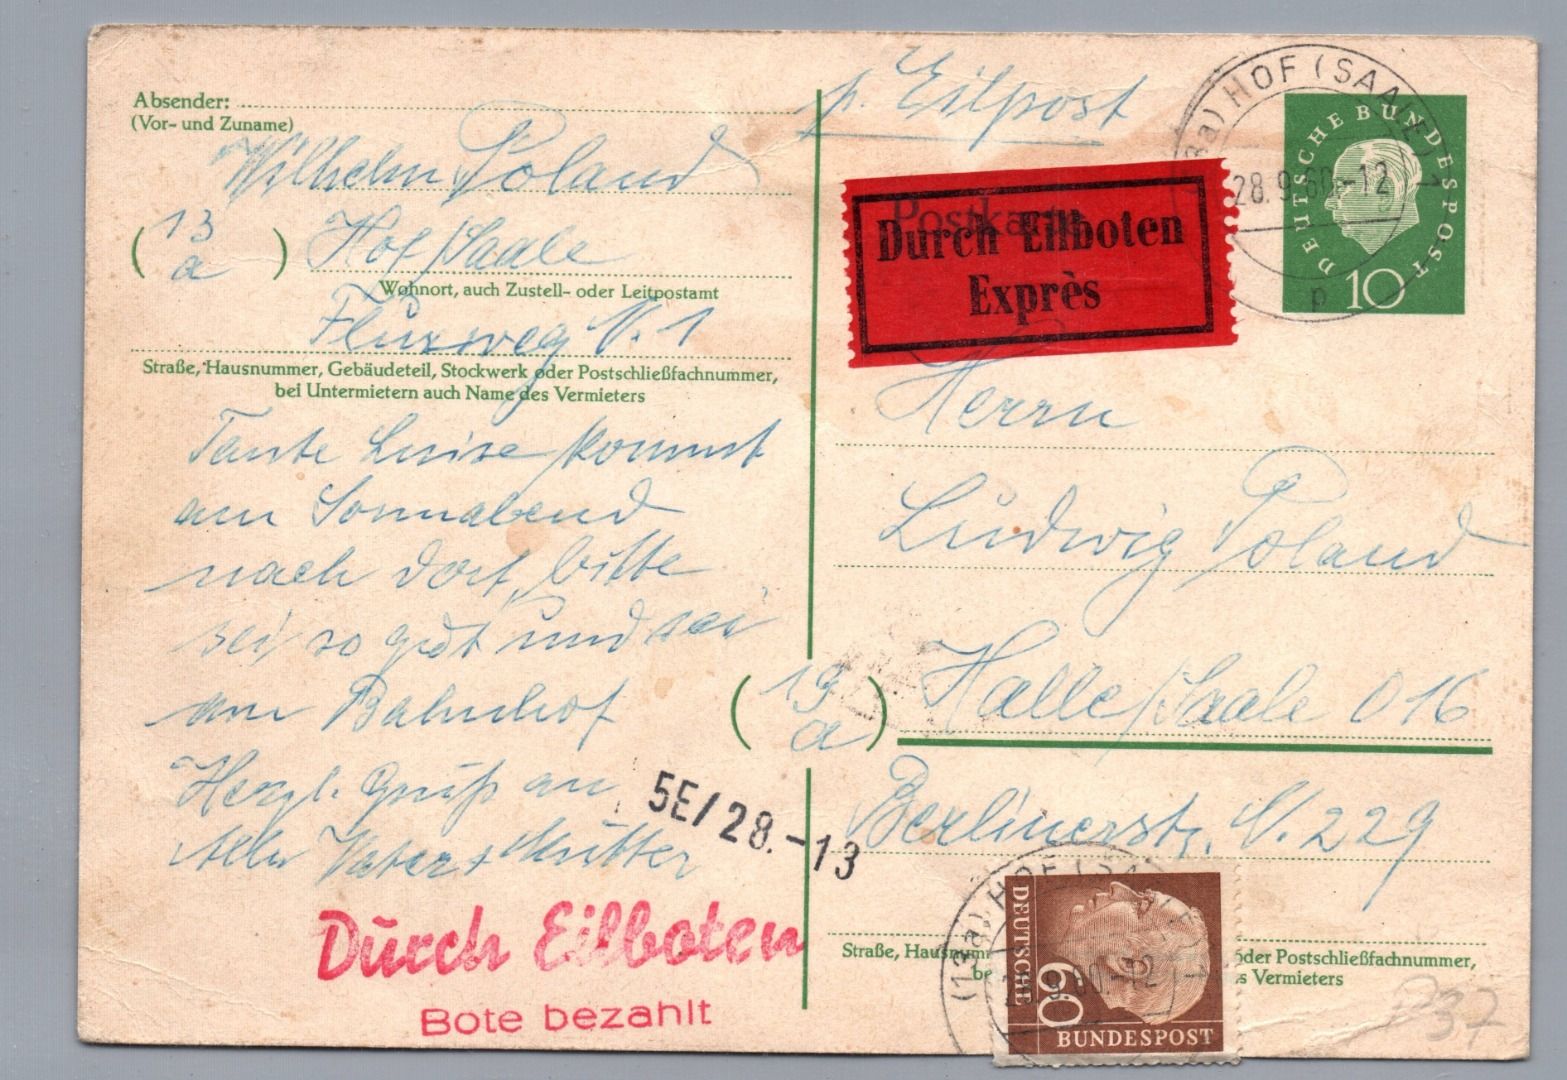 Absender:
(Vor- und Zuname)
Wilhelm Poland
(13a) Hof/Saale
Wohnort, auch Zustell- oder Leitpostamt
N. 1
Straße, Hausnummer, Gebäudeteil, Stockwerk oder Postschließfachnummer,
bei Untermietern auch Name des Vermieters
Tante Luise kommt
am Sonnabend
nach dort, bitte
sei so gut und sei
am Bahnhof
Herzl. Gruß an
Alle Vater + Mutter
5E/28.-13
Durch Eilboten
Bote bezahlt
p. Eilpost
Postkarte
Durch Eilboten
Exprès
(13a) HOF (SAALE) 1
28.9.60.-12
p
DEUTSCHE BUNDESPOST
10
Herrn
Ludwig Poland
(19a) Halle/Saale O 16
Berlinerstr. N. 229
Straße, Hausnum
oder Postschließfachnummer,
be
s Vermieters
(13a) HOF (SAALE) 1
28.9.60.-12
DEUTSCHE
60
BUNDESPOST
P37